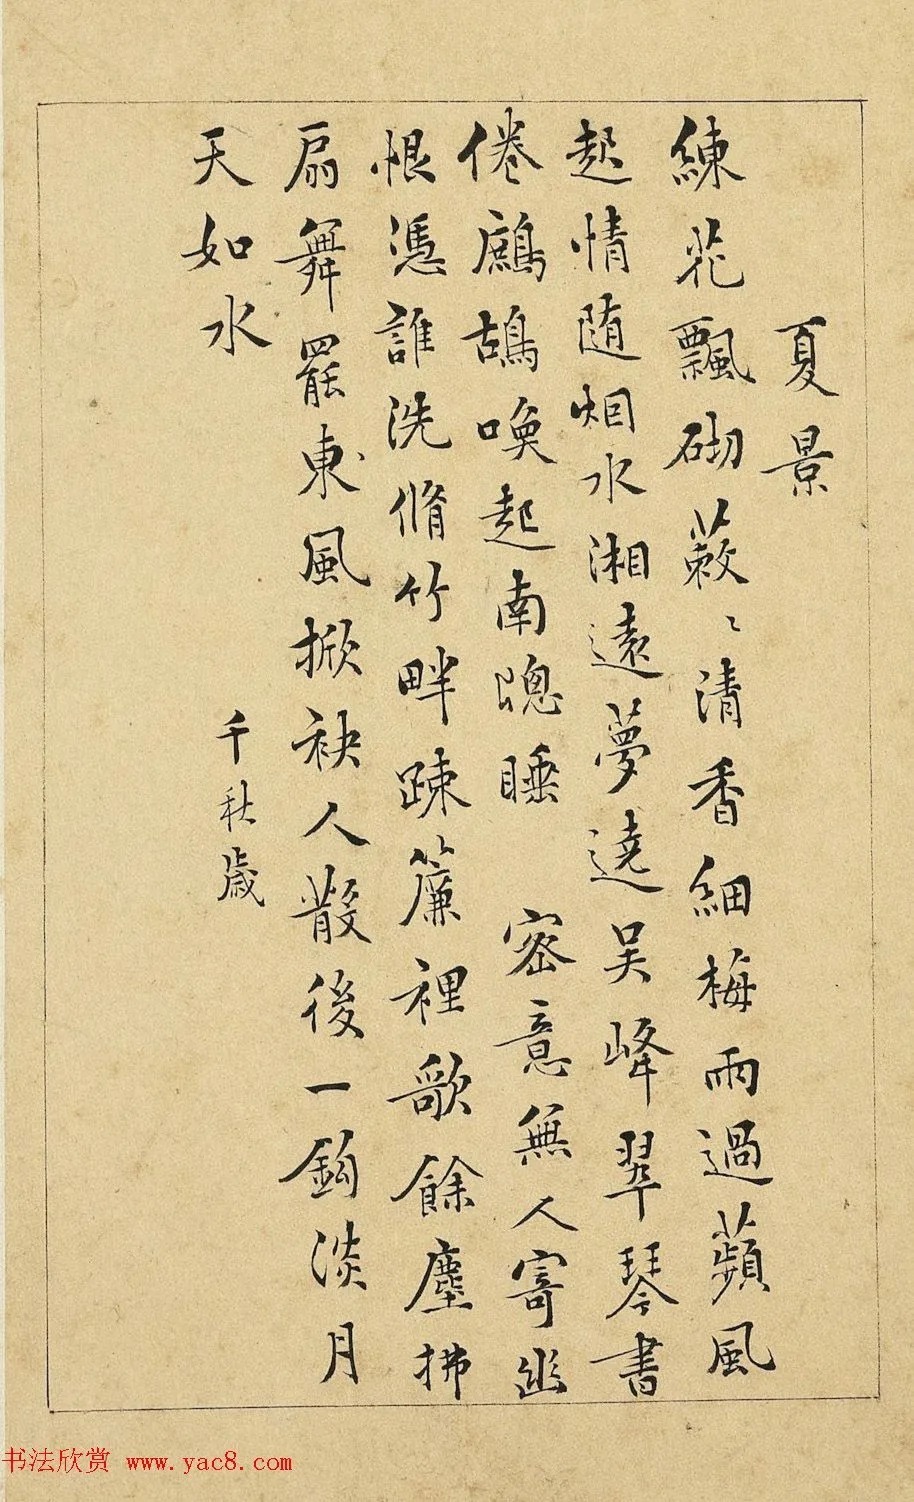 夏景
練花飄砌蔌〻清香細梅雨過蘋風
起情随烟水湘遠夢遶吴峰翠琴書
倦鷓鴣喚起南窻睡 密意無人寄幽
恨憑誰洗脩竹畔踈簾裡歌餘塵拂
扇舞罷東風掀袂人散後一鈎淡月
天如水
千秋歲
书法欣赏 www.yac8.com